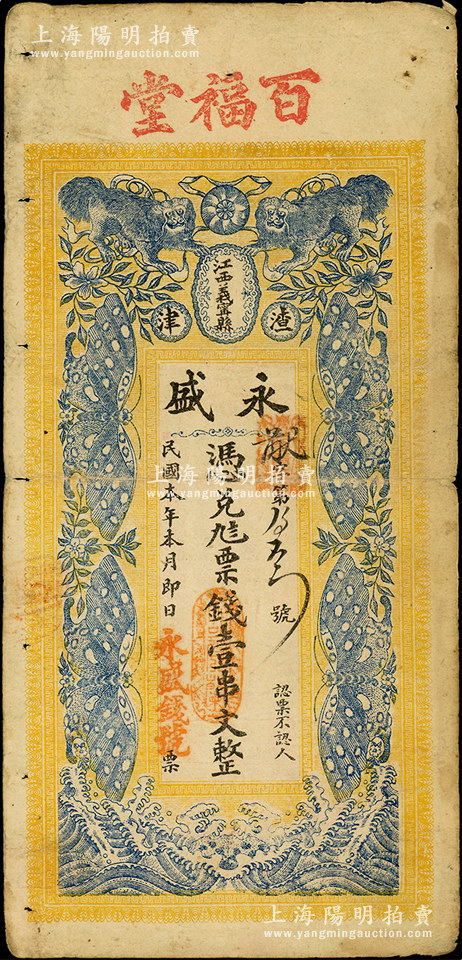 上海陽明拍賣
www.yangmingauction.com
百福堂
江西義寧縣
渣津
永盛
第
號
憑票兌九㐂票錢壹串文整
認票不認人
民國
年本月即日
永盛錢號
票
上海陽明拍賣
www.yangmingauction.com
上海陽明拍賣
www.yangmingauction.com